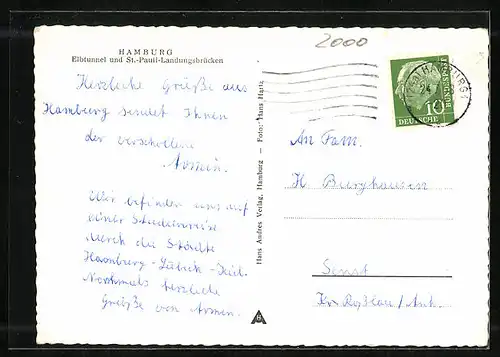 HAMBURG
Elbtunnel und St.-Pauli-Landungsbrücken
2000
Herzliche Grüße aus
Hamburg sendet Ihnen
der verschollene
Armin.
Wir befinden uns auf
einer Studienreise
durch die Städte
Hamburg-Lübeck-Kiel.
Nochmals herzliche
Grüße von Armin.
Hans Andres Verlag, Hamburg — Foto: Hans Hartz
HAMBURG 1
10
DEUTSCHE
BUNDESPOST
An Fam.
H Burghausen
Senst
Kr. Roßlau/Anh.